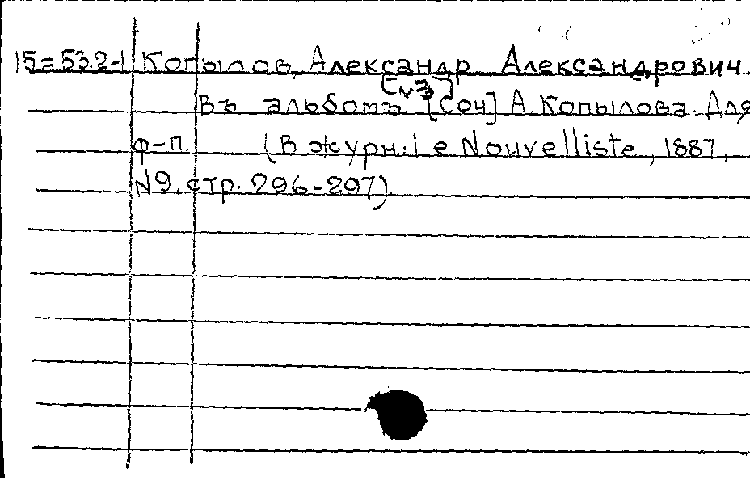 15=532-1 Копылов, Александр Александрович.
[№3]
Въ альбомъ [Соч] А. Копылова. Для
ф-п. (В журн: Le Nouvelliste, 1887,
№9. стр. 296-297).